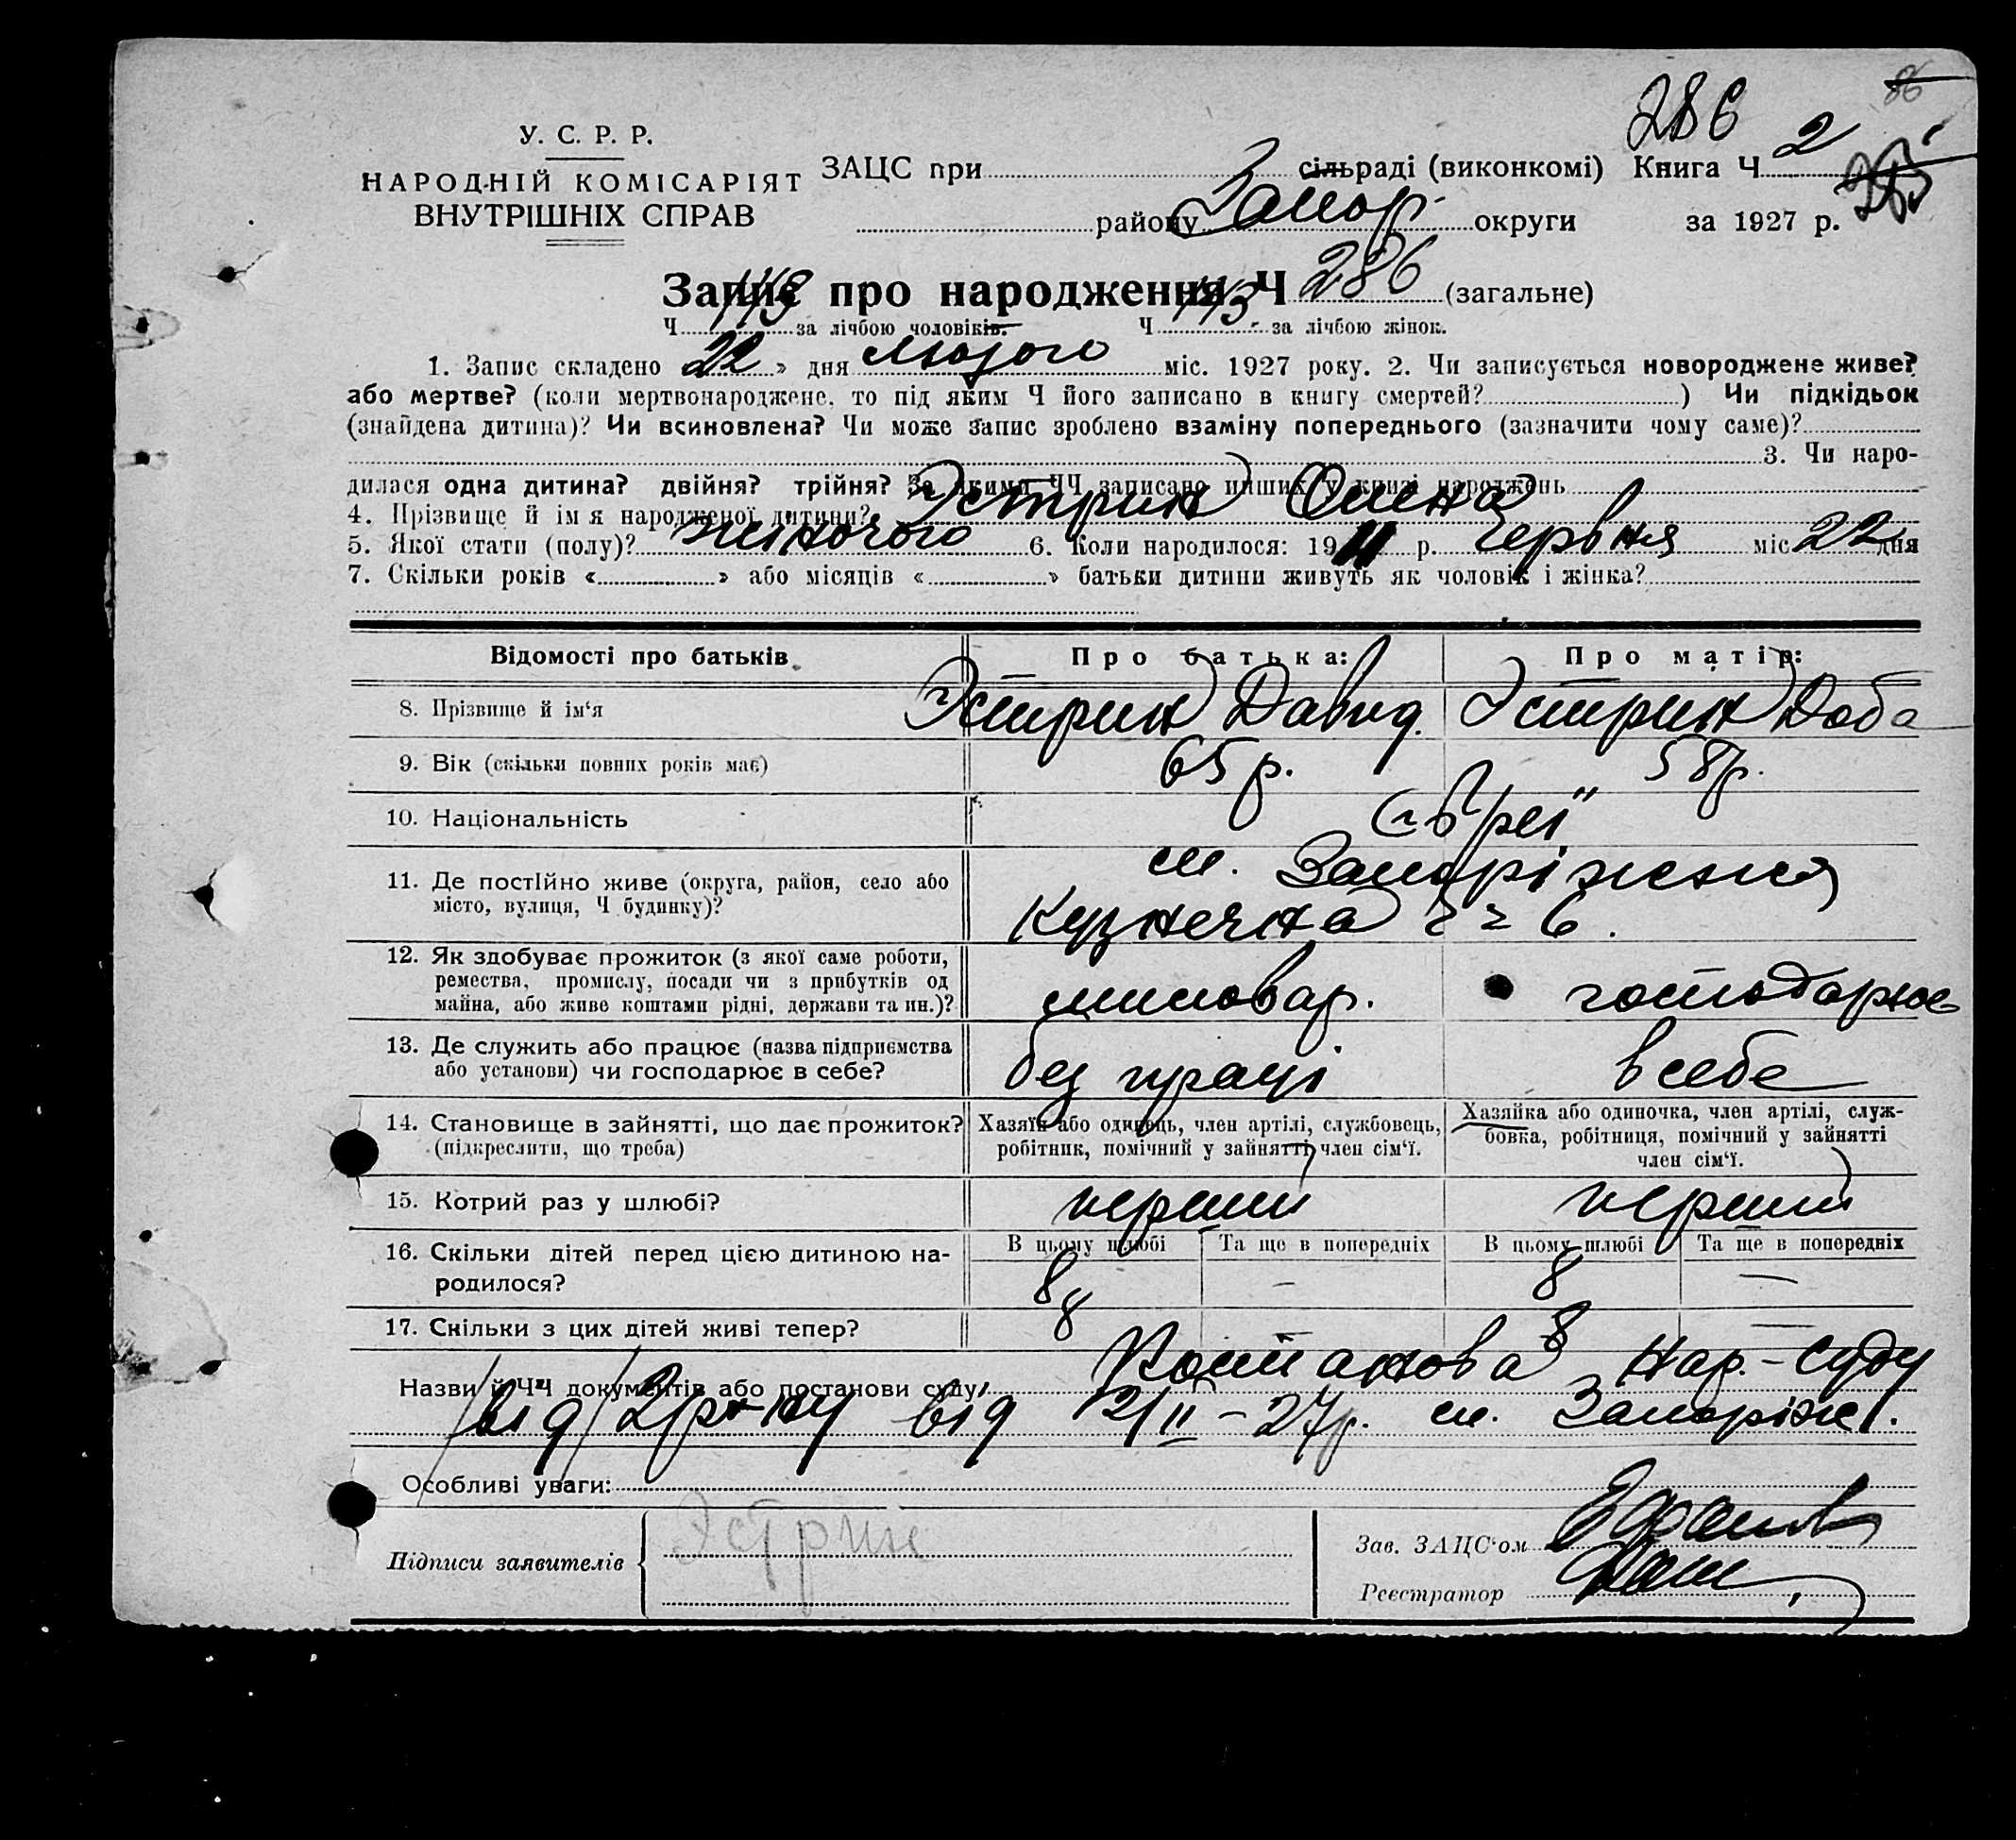 86
286
У. С. Р. Р.
НАРОДНІЙ КОМІСАРІЯТ
ВНУТРІШНІХ СПРАВ
ЗАЦС при сільраді (виконкомі) Книга Ч 2
району Запор. округи за 1927 р.
Запис про народження Ч 286 (загальне)
Ч 143 за лічбою чоловіків. Ч 143 за лічбою жінок.
1. Запис складено 22 » дня лютого міс. 1927 року. 2. Чи записується новороджене живе?
або мертве? (коли мертвонароджене, то під яким Ч його записано в книгу смертей? ) Чи підкідьок
(знайдена дитина)? Чи всиновлена? Чи може запис зроблено взаміну попереднього (зазначити чому саме)?
3. Чи наро-
дилася одна дитина? двійня? трійня? За якими ЧЧ записано инших у книзі народжень
4. Прізвище й ім я народженої дитини? Эстрин
5. Якої стати (полу)? жіночого 6. Коли народилося: 1911 р. червня міс. 22 дня
7. Скільки років « » або місяців « » батьки дитини живуть як чоловік і жінка?
Відомості про батьків Про батька: Про матір:
8. Прізвище й ім‘я Эстрин Давид. Эстрин Доба
9. Вік (скільки повних років має) 65 р. 58 р.
10. Національність Євреї
11. Де постійно живе (округа, район, село або м. Запоріжжя
місто, вулиця, Ч будинку)? Кузнечна 6.
12. Як здобуває прожиток (з якої саме роботи,
ремества, промислу, посади чи з прибутків од миловар. господарює
майна, або живе коштами рідні, держави та ин.)?
13. Де служить або працює (назва підприємства
або установи) чи господарює в себе? без праці в себе
14. Становище в зайнятті, що дає прожиток? Хазяїн або одинець, член артілі, службовець, Хазяйка або одиночка, член артілі, служ-
(підкреслити, що треба) робітник, помічний у зайнятті член сім‘ї. бовка, робітниця, помічний у зайнятті
член сім‘ї.
15. Котрий раз у шлюбі? перший перший
16. Скільки дітей перед цією дитиною на- В цьому шлюбі Та ще в попередніх В цьому шлюбі Та ще в попередніх
родилося? 8 — 8 —
17. Скільки з цих дітей живі тепер? 8 8 —
Назви й ЧЧ документів або постанови суду: Постанова Нар.-Суду
від 2/II – 27 р. м. Запоріж.
Особливі уваги:
Підписи заявителів Эстрин
Зав. ЗАЦС‘ом
Реєстратор